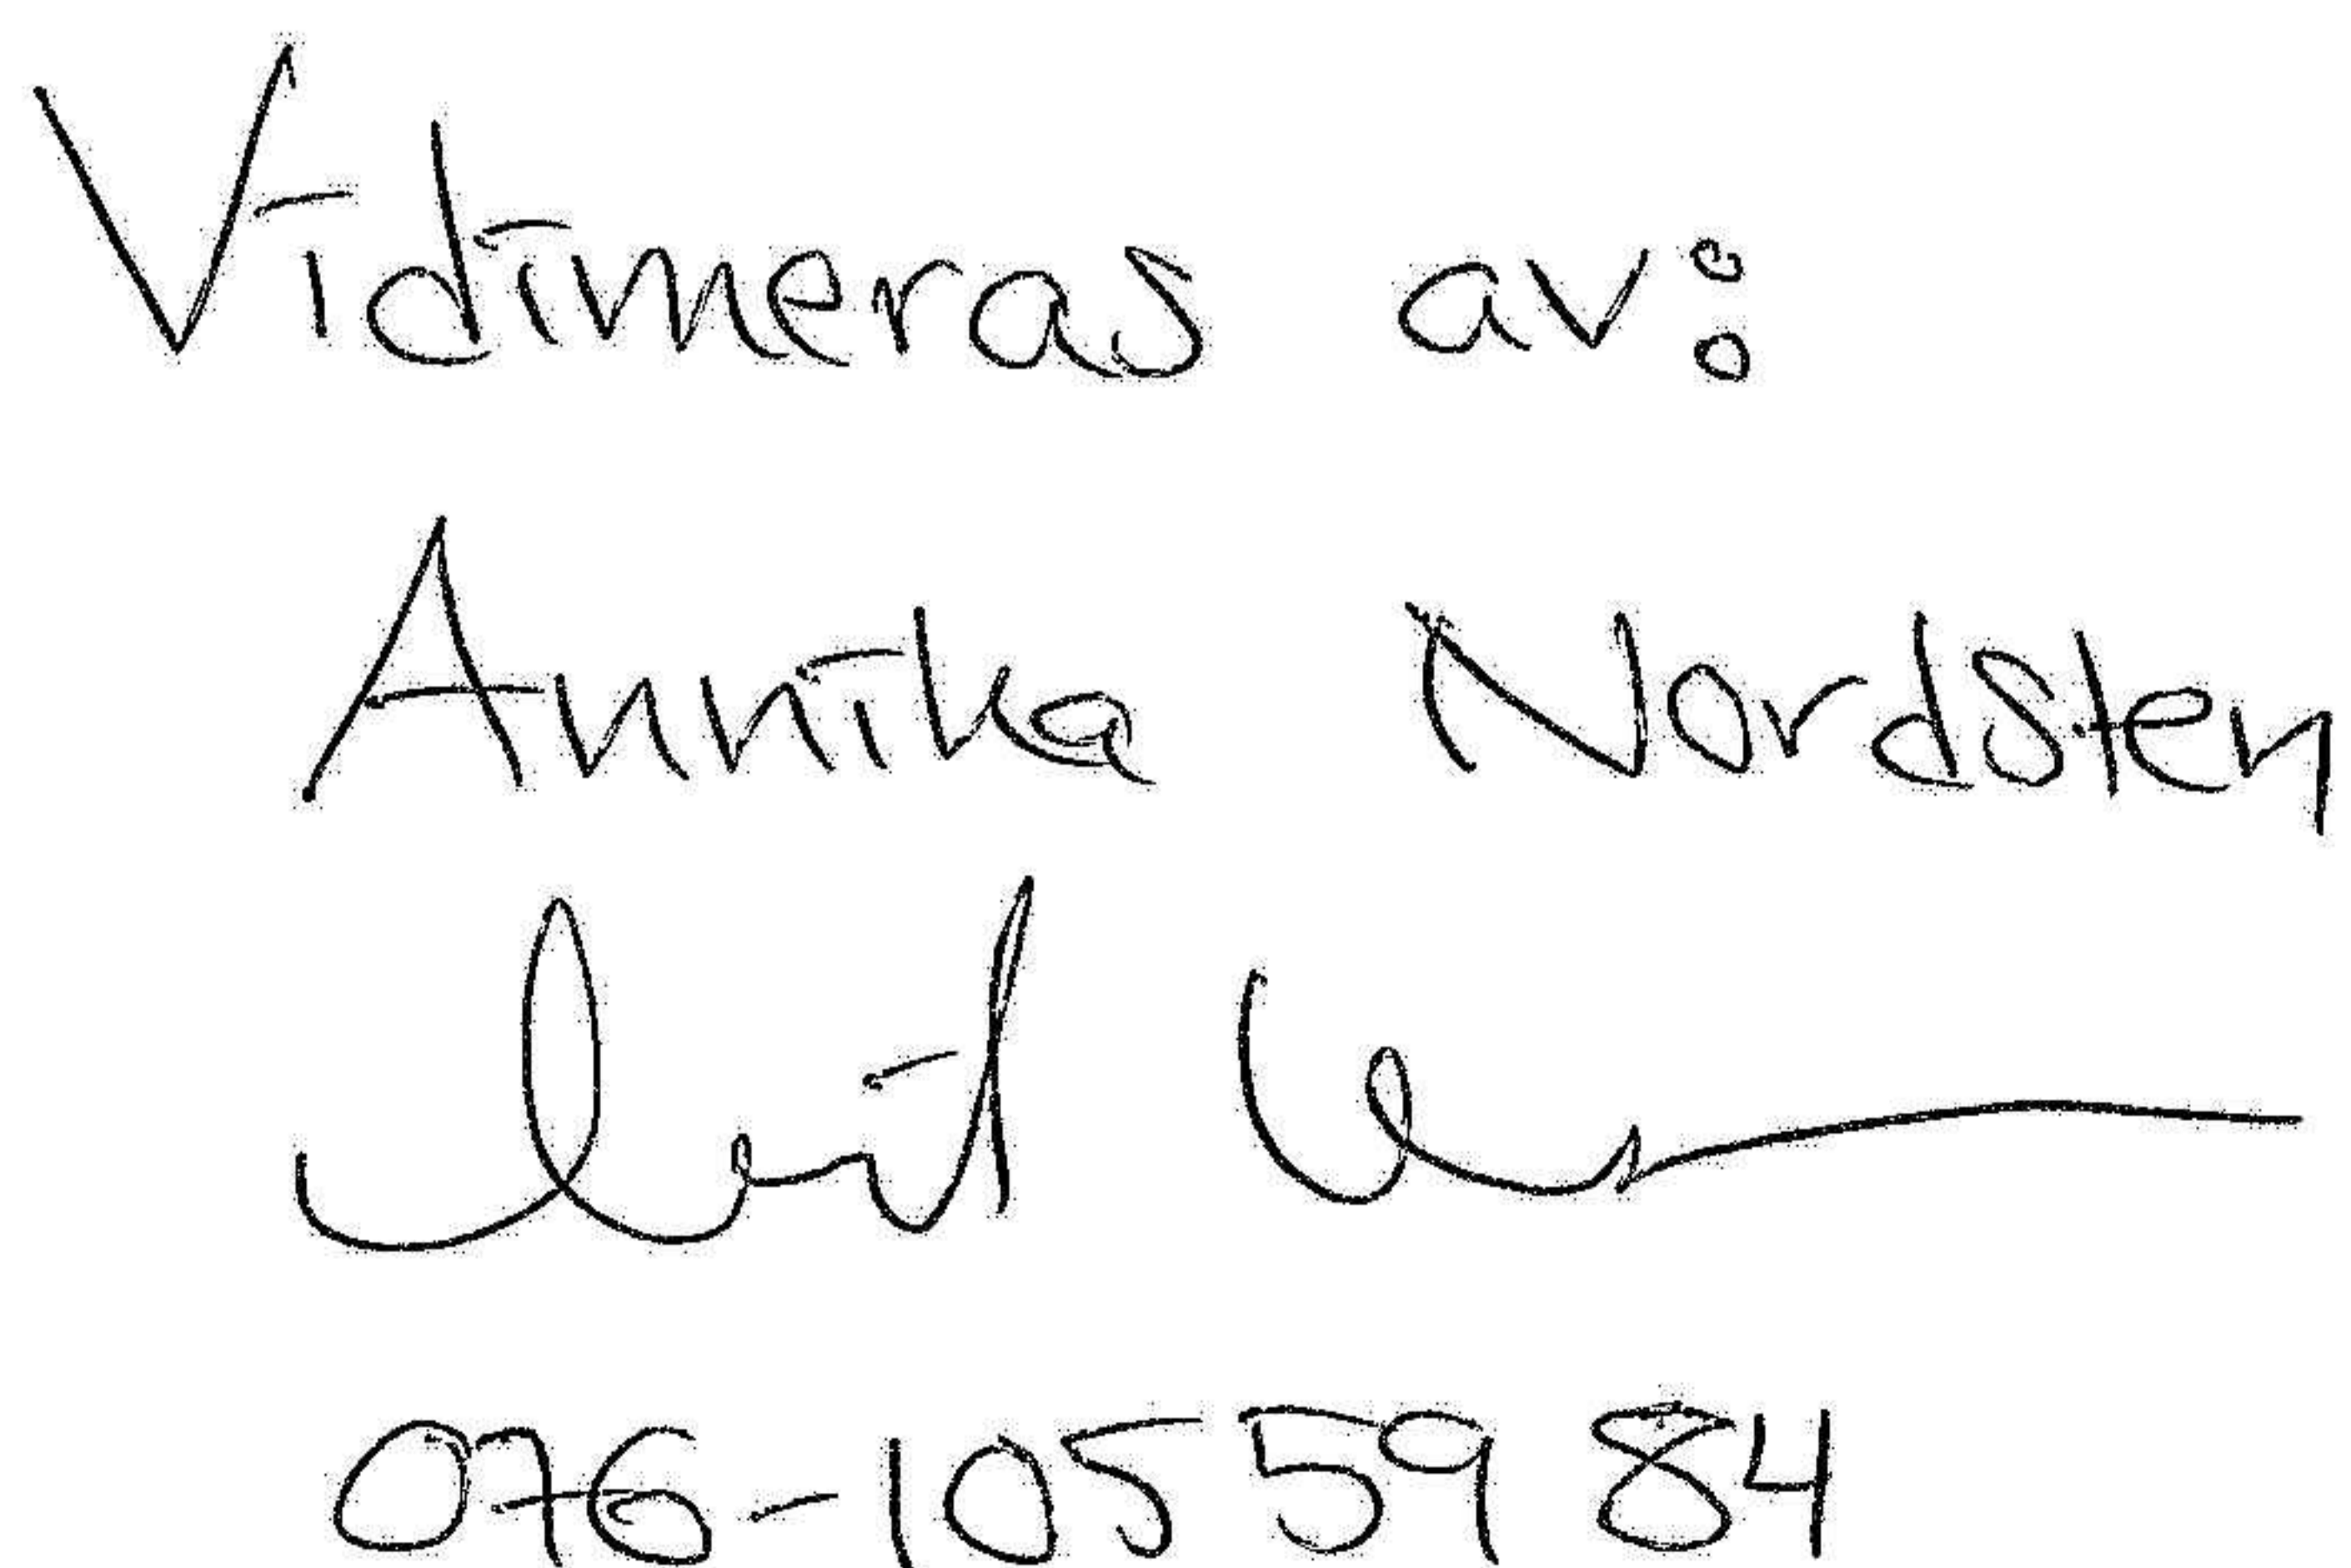 Vidimeras av:
Annika Nordsten
076-105 59 84